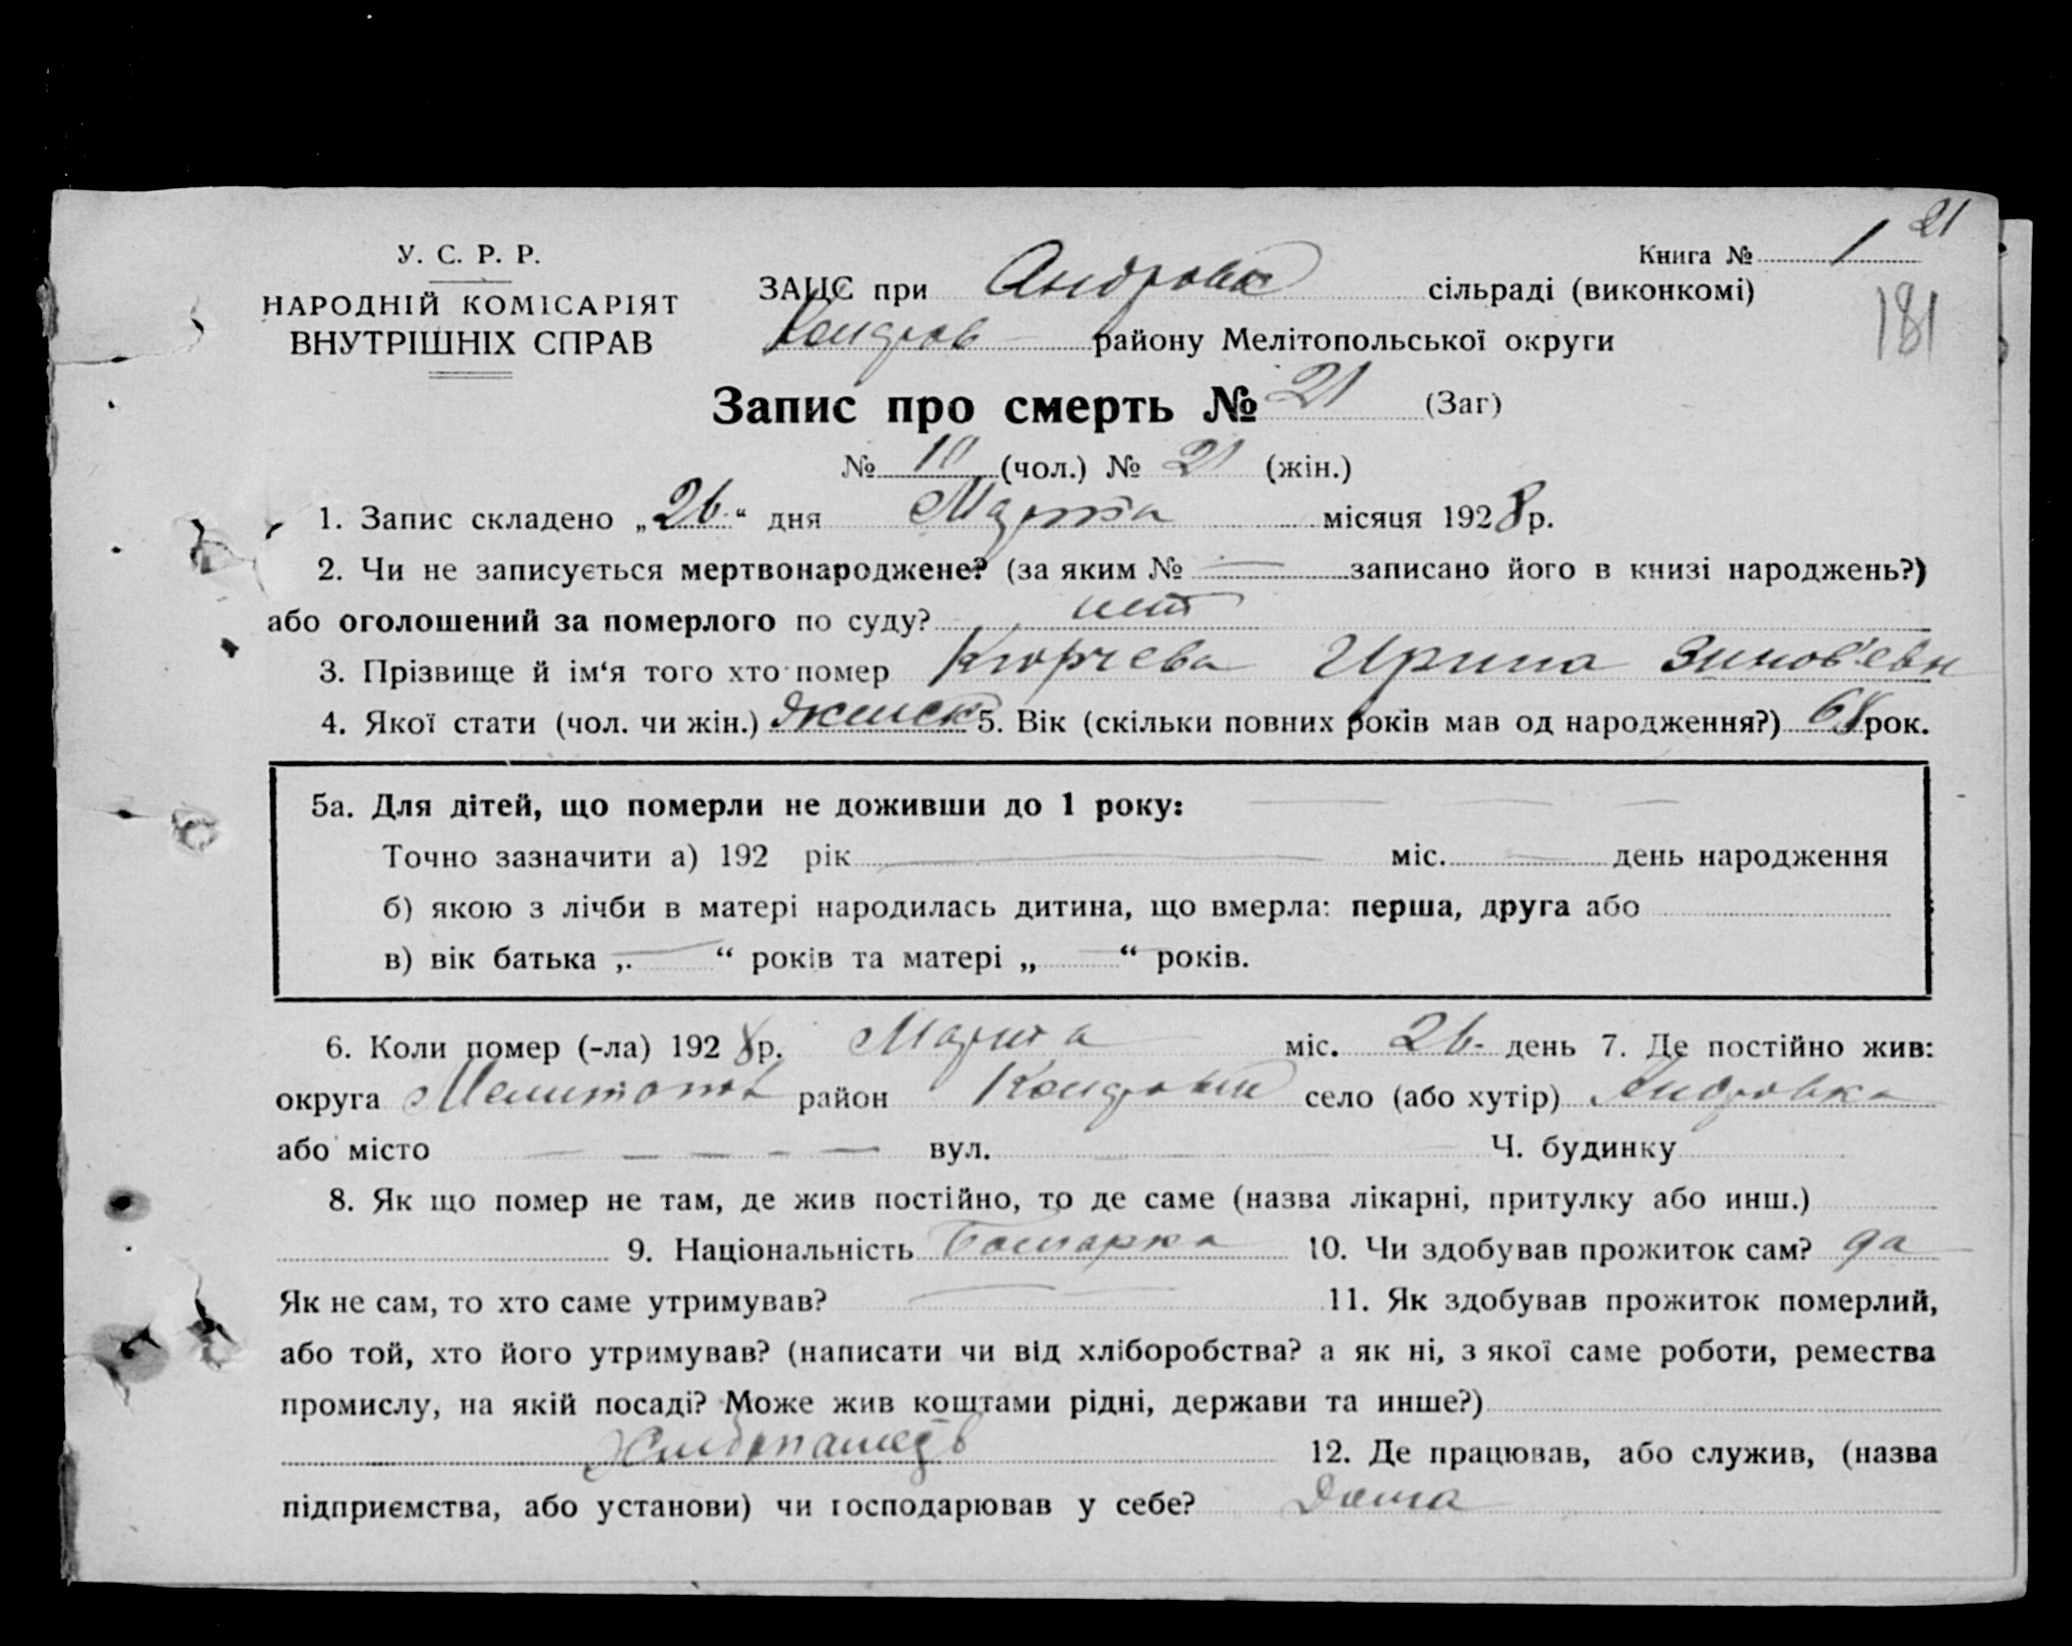 21
У. С. Р. Р.
Книга № 1
НАРОДНІЙ КОМІСАРІЯТ
ВНУТРІШНІХ СПРАВ
ЗАЦС при Андровк сільраді (виконкомі)
181
району Мелітопольської округи
Запис про смерть № 21 (Заг)
№ 10 (чол.) № 21 (жін.)
1. Запис складено „26“ дня Марта місяця 1928 р.
2. Чи не записується мертвонароджене? (за яким № — записано його в книзі народжень?)
або оголошений за померлого по суду? нет
3. Прізвище й ім‘я того хто помер Кюрчева Ирина Зинов'евн
4. Якої стати (чол. чи жін.) женск 5. Вік (скільки повних років мав од народження?) 68 рок.
5а. Для дітей, що померли не доживши до 1 року:
Точно зазначити а) 192 рік — міс. — день народження
б) якою з лічби в матері народилась дитина, що вмерла: перша, друга або
в) вік батька „—“ років та матері „—“ років.
6. Коли помер (-ла) 1928 р. Марта міс. 26 день 7. Де постійно жив:
округа Мелитопол район село (або хутір) Андровка
або місто — — — - — вул. Ч. будинку
8. Як що помер не там, де жив постійно, то де саме (назва лікарні, притулку або инш.)
9. Національність Болгарка 10. Чи здобував прожиток сам? да
Як не сам, то хто саме утримував? — 11. Як здобував прожиток померлий,
або той, хто його утримував? (написати чи від хліборобства? а як ні, з якої саме роботи, ремества
промислу, на якій посаді? Може жив коштами рідні, держави та инше?)
12. Де працював, або служив, (назва
підприємства, або установи) чи господарював у себе? Дома